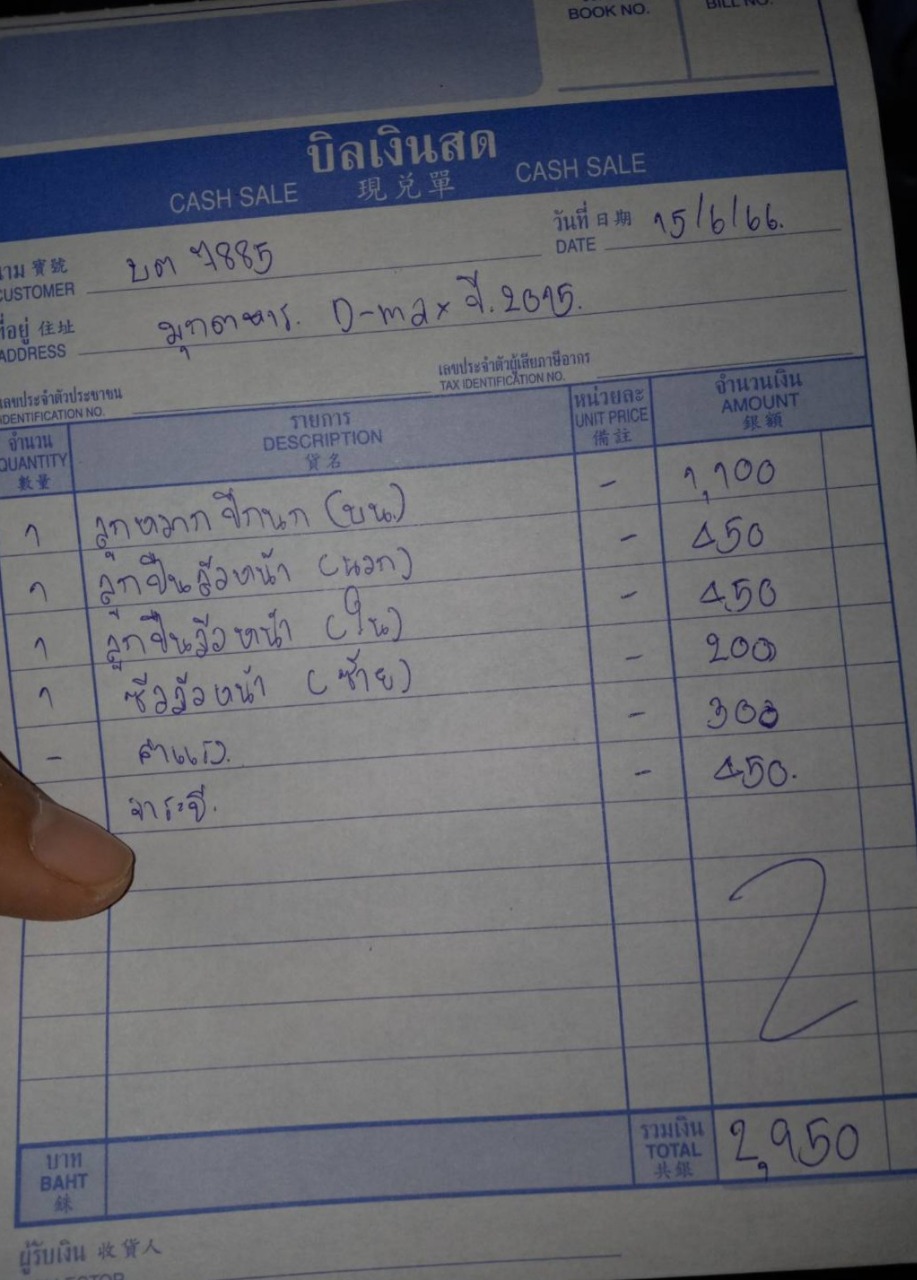 BOOK NO.
BILL NO.
บิลเงินสด
CASH SALE 現兑單 CASH SALE
นาม 寳號 บต 7885 วันที่ 日期 15/6/66.
CUSTOMER DATE
ที่อยู่ 住址 มุกดาหาร. D-max ปี.2015.
ADDRESS
เลขประจำตัวประชาชน เลขประจำตัวผู้เสียภาษีอากร
IDENTIFICATION NO. TAX IDENTIFICATION NO.
จำนวน รายการ หน่วยละ จำนวนเงิน
QUANTITY DESCRIPTION UNIT PRICE AMOUNT
數量 貨名 備註 銀額
1 ลูกหมาก ปีกนก (บน.) - 1,100
1 ลูกปืนล้อหน้า (นอก) - 450
1 ลูกปืนล้อหน้า (ใน) - 450
1 ซีลล้อหน้า (ซ้าย) - 200
- ค่าแรง. - 300
จาระบี. - 450.
บาท รวมเงิน 2,950
BAHT TOTAL
銖 共銀
ผู้รับเงิน 收貨人